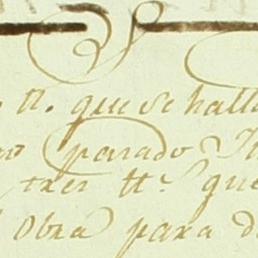 tt. que se halla
parado
tres tt.s que
Obra para d